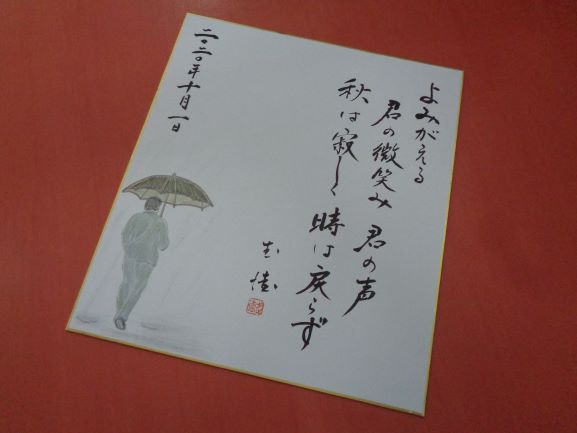 よみがえる
君の微笑み 君の声
秋は寂しく 時は戻らず
二〇二〇年十月一日